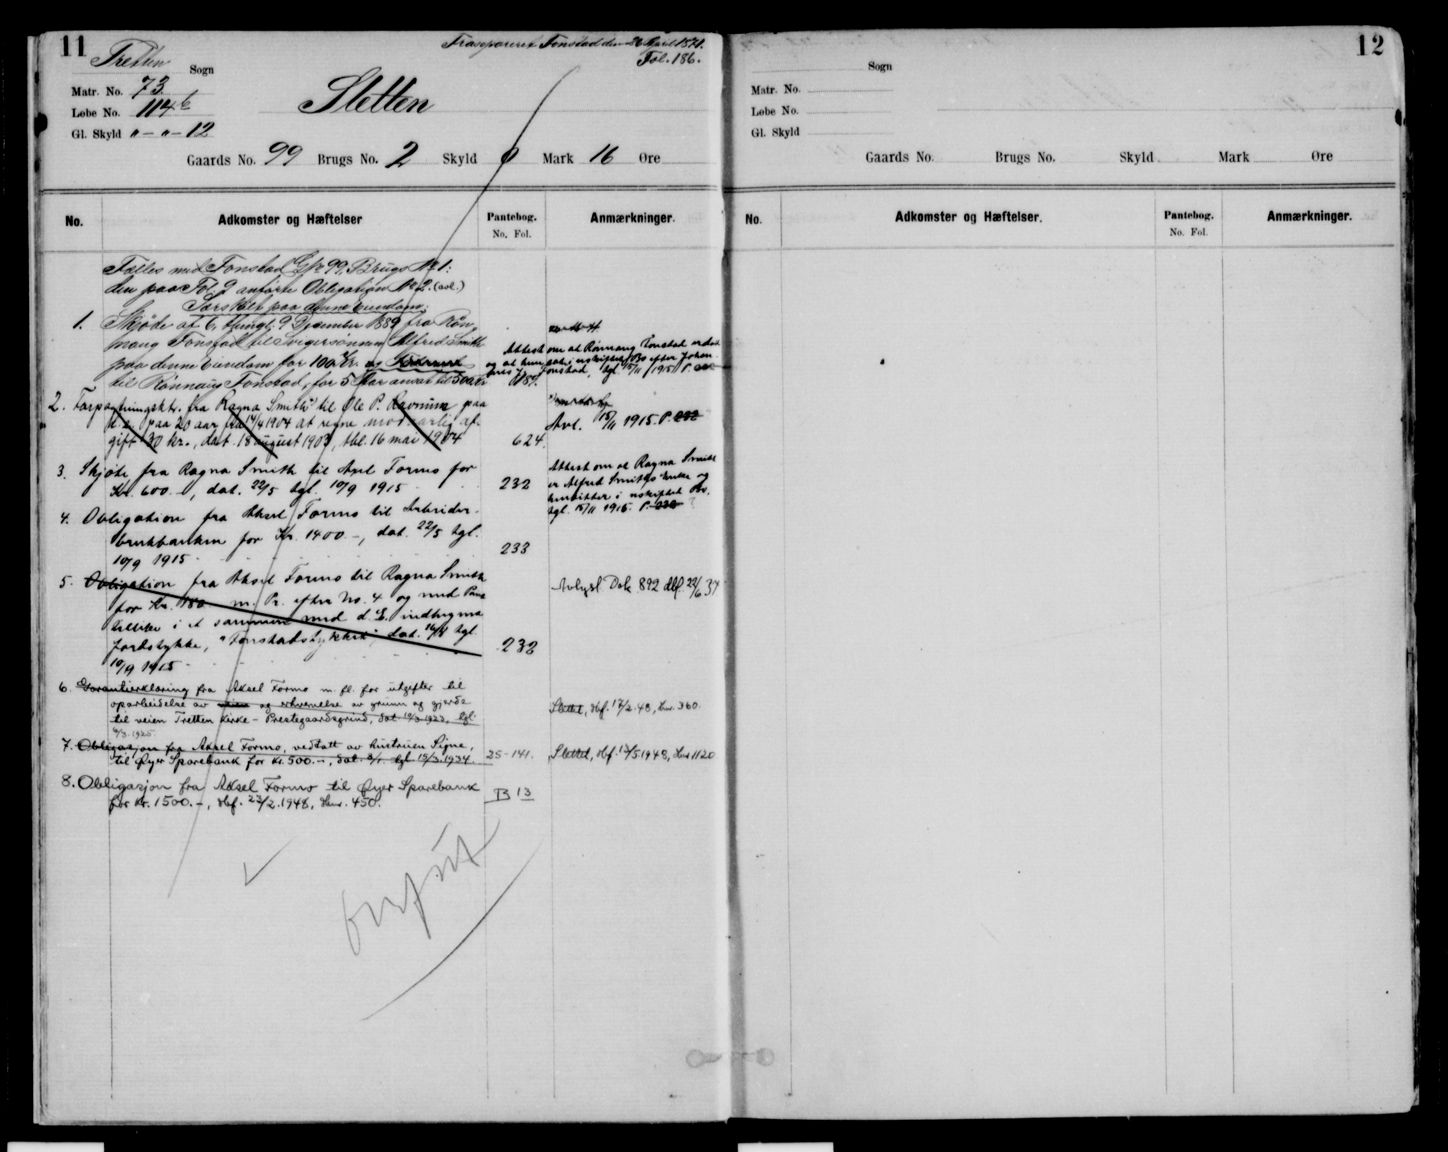 11
Trasepareret Fonstad den 26 April 1871.
Fol. 186.
Tretten Sogn
Matr. No. 73
Løbe No. 114 b
Gl. Skyld " - " - 12
Sletten
Gaards No. 99 Brugs No. 2 Skyld 0 Mark 16 Øre
No. Adkomster og Hæftelser Pantebog. No. Fol. Anmærkninger.
Fælles med Fonstad G.№ 99, Brugs № 1:
den paa Fol. 9 anførte Obligation № 2. (avl.)
Særskilt paa denne Eiendom:
1. Skjøde af 6, thingl. 9 December 1889 fra Røn
naug Fonstad til Svigersønnen Alfred Smith
paa denne Eiendom for 100 Kr. og
til Rønnaug Fonstad, for 5 Aar ansat til 500 Kr. 157.
Attest om at Rønnaug Fonstad er død
og at hun sat i uskiftet Bo efter Johan
nes J. Fonstad, tgl. 15/11 1915 P.
2. Forpagtningsktr. fra Ragna Smith til Ole P. Ravnum paa
d.e. paa 20 aar fra 14/4 1904 at regne mod aarlig af-
gift 30 kr., dat. 18 august 1903, tbl. 16 mai 1904 624.
Avl. 15/11 1915. P. 232
3. Skjøte fra Ragna Smith til Axel Formo for
Kr. 600.-, dat. 22/5 tgl. 10/9 1915 232
Attest om at Ragna Smith
er Alfred Smiths enke og
hensitter i uskiftet Bo,
tgl. 15/11 1915. P. 232
4. Obligation fra Aksel Formo til Arbeider-
brukbanken for Kr. 1400.-, dat. 22/5 tgl.
10/9 1915 233
5. Obligation fra Aksel Formo til Ragna Smith
for Kr. 180 m. Pr. efter No. 4 og med Pan
tillike i et sammen med d.E. indhegna
Jordstykke, "Fonstadstykket", dat. 16/8 tgl.
10/9 1915 232
Avlyst Dok 892 dbf. 22/6 34
6. Garantierklæring fra Aksel Formo m. fl. for utgifter til
oparbeidelse av veien og erhvervelse av grunn og gjerde
til veien Tretten Kirke - Prestegaardsgrind, dat 12/3 1923, tgl.
6/3. 1925
Slettet, dbf. 17/2. 48, Lnr. 360.
7. Obligasjon fra Aksel Formo, vedtatt av hustruen Signe,
til Øyer Sparebank for kr. 500.-, dat. 8/1 tgl. 15/3. 1934. 25-141.
Slettet, dbf. 13/5 1948, Lnr 1120
8. Obligasjon fra Aksel Formo til Øyer Sparebank
for kr. 1500.-, dbf. 23/2. 1948, Lnr. 450. B 13
12
Sogn
Matr. No.
Løbe No.
Gl. Skyld
Gaards No. Brugs No. Skyld Mark Øre
No. Adkomster og Hæftelser. Pantebog. No. Fol. Anmærkninger.